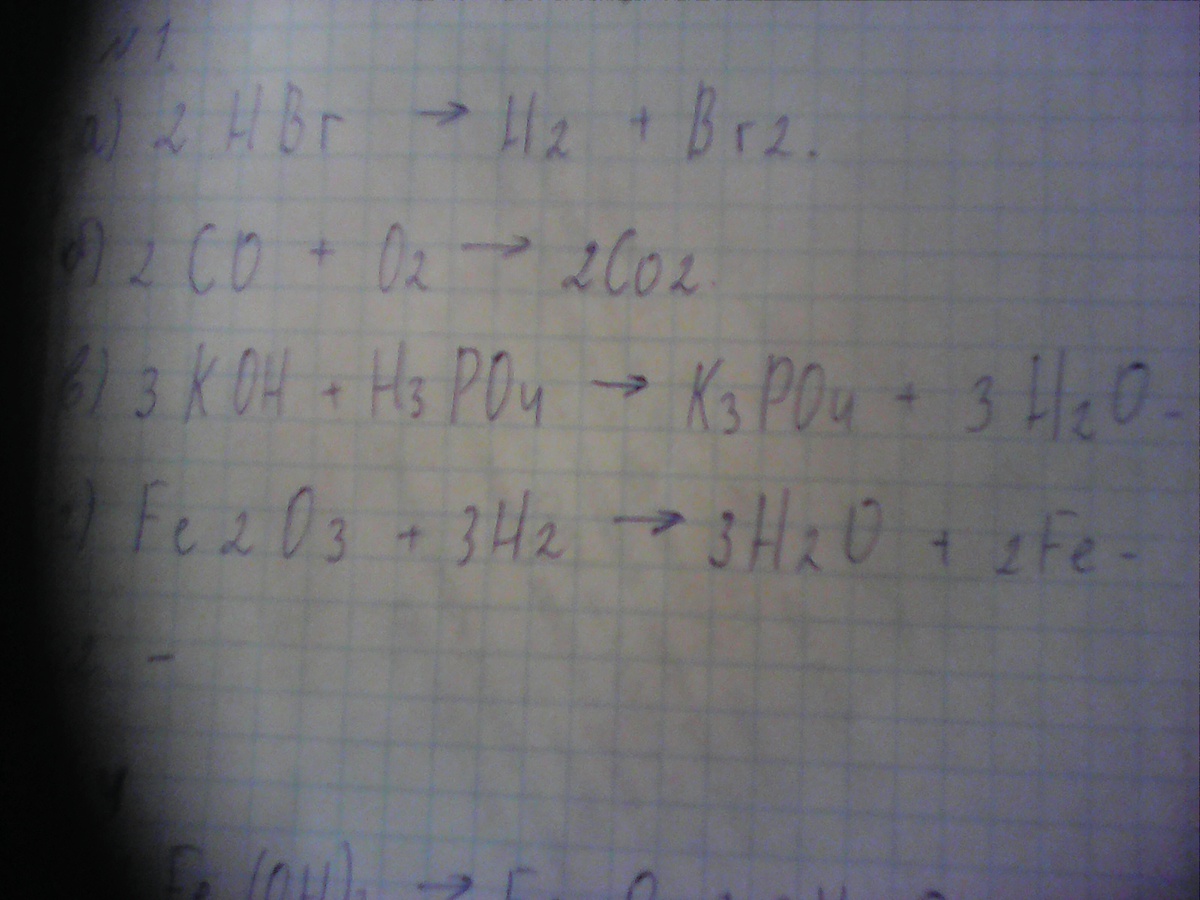 №1
а) 2 HBr → H2 + Br2.
б) 2 CO + O2 → 2Co2.
в) 3 KOH + H3PO4 → K3PO4 + 3 H2O -
г) Fe2O3 + 3H2 → 3H2O + 2Fe -
-
Fe (OH) →